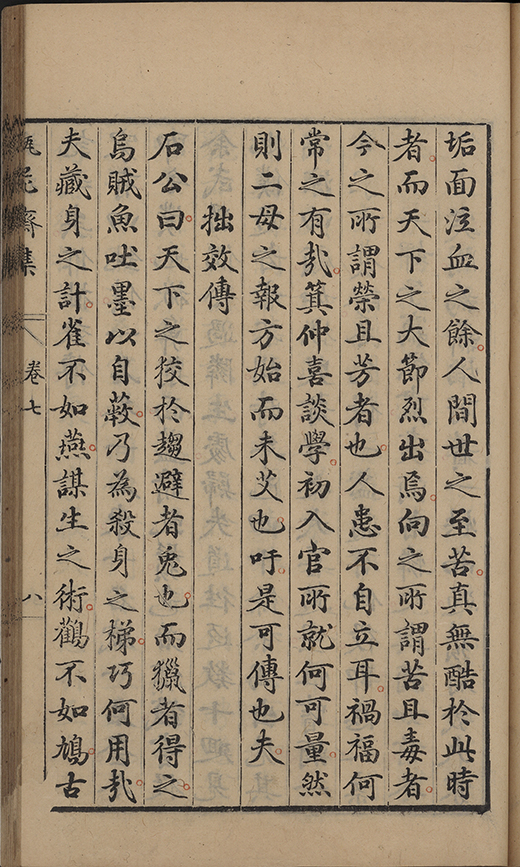 垢面泣血之餘人間世之至苦真無酷於此時
者而天下之大節烈出焉向之所謂苦且毒者
今之所謂榮且芳者也人患不自立耳禍福何
常之有㢤箕仲喜談學初入官所就何可量然
則二母之報方始而未艾也吁是可傳也夫
拙效傳
石公曰天下之狡於趨避者兎也而獵者得之
烏賊魚吐墨以自蔽乃為殺身之梯巧何用㢤
夫藏身之計雀不如燕謀生之術鸛不如鳩古
齋集
卷七
八